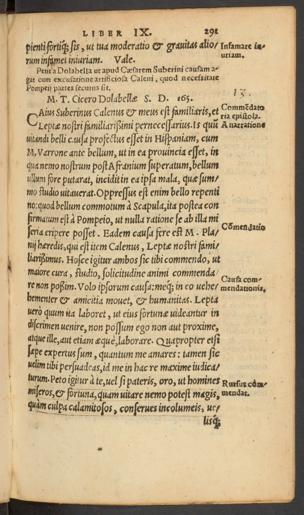 LIBER IX. 291
pienti fortiq́; sis, ut tua moderatio & grauitas alio/
rum infamet iniuriam. Vale.
Infamare in
iuriam.
Petit a Dolabella ut apud Cæsarem Suberini causam a-
gat cum excusatione artificiosa Caleni, quod necessitate
Pompeij partes secutus sit.
M. T. Cicero Dolabellæ S. D. 165.
13.
CAius Suberinus Calenus & meus est familiaris, et
Leptæ nostri familiarißimi pernecessarius. Is quũ
uitandi belli causa profectus esset in Hispaniam, cum
M. Varrone ante bellum, ut in ea prouincia esset, in
qua nemo nostrum post Afranium superatum, bellum
ullum fore putarat, incidit in ea ipsa mala, quæ sum/
mo studio uitauerat. Oppressus est enim bello repenti
no: quod bellum commotum à Scapula, ita postea con
firmatum est à Pompeio, ut nulla ratione se ab illa mi
seria eripere posset. Eadem causa fere est M. Pla/
nij hæredis, qui est item Calenus, Leptæ nostri fami/
liarißimus. Hosce igitur ambos sic tibi commendo, ut
maiore cura, studio, solicitudine animi commenda/
re non poßim. Volo ipsorum causa: meq́; in eo uehe/
hementer & amicitia mouet, & humanitas. Lepta
uerò quum ita laboret, ut eius fortunæ uideantur in
discrimen uenire, non possum ego non aut proxime,
atque ille, aut etiam æquè, laborare. Quapropter etsi
sæpe expertus sum, quantum me amares: tamen sic
uelim tibi persuadeas, id me in hac re maxime iudica/
turum. Peto igitur à te, uel si pateris, oro, ut homines
miseros, & fortuna, quam uitare nemo potest magis,
quàm culpa calamitosos, conserues incolumeis, ue/
lisq́;
Commẽdato
ria epistola.
A narratione
Cõmendatio
Causa com-
mendationis.
Rursus com-
mendat.